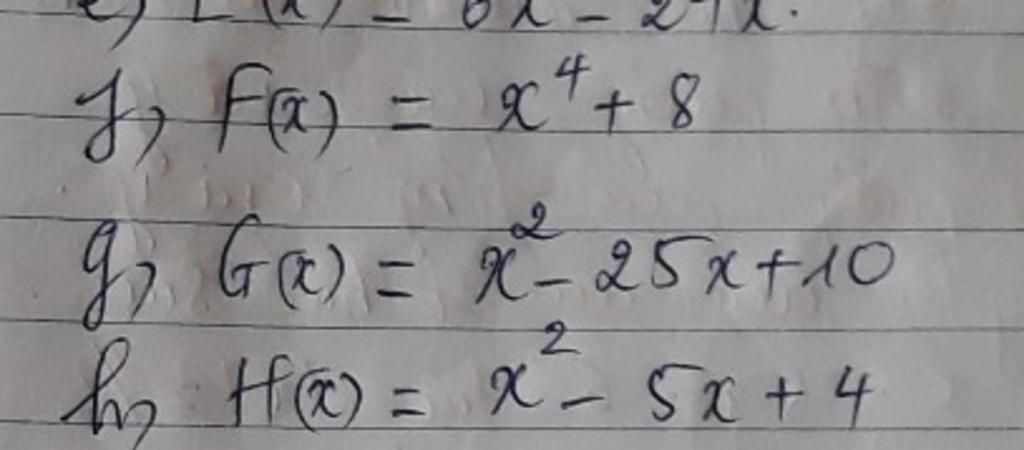 f, F(x) = x⁴ + 8
g, G(x) = x² - 25x + 10
h, H(x) = x² - 5x + 4